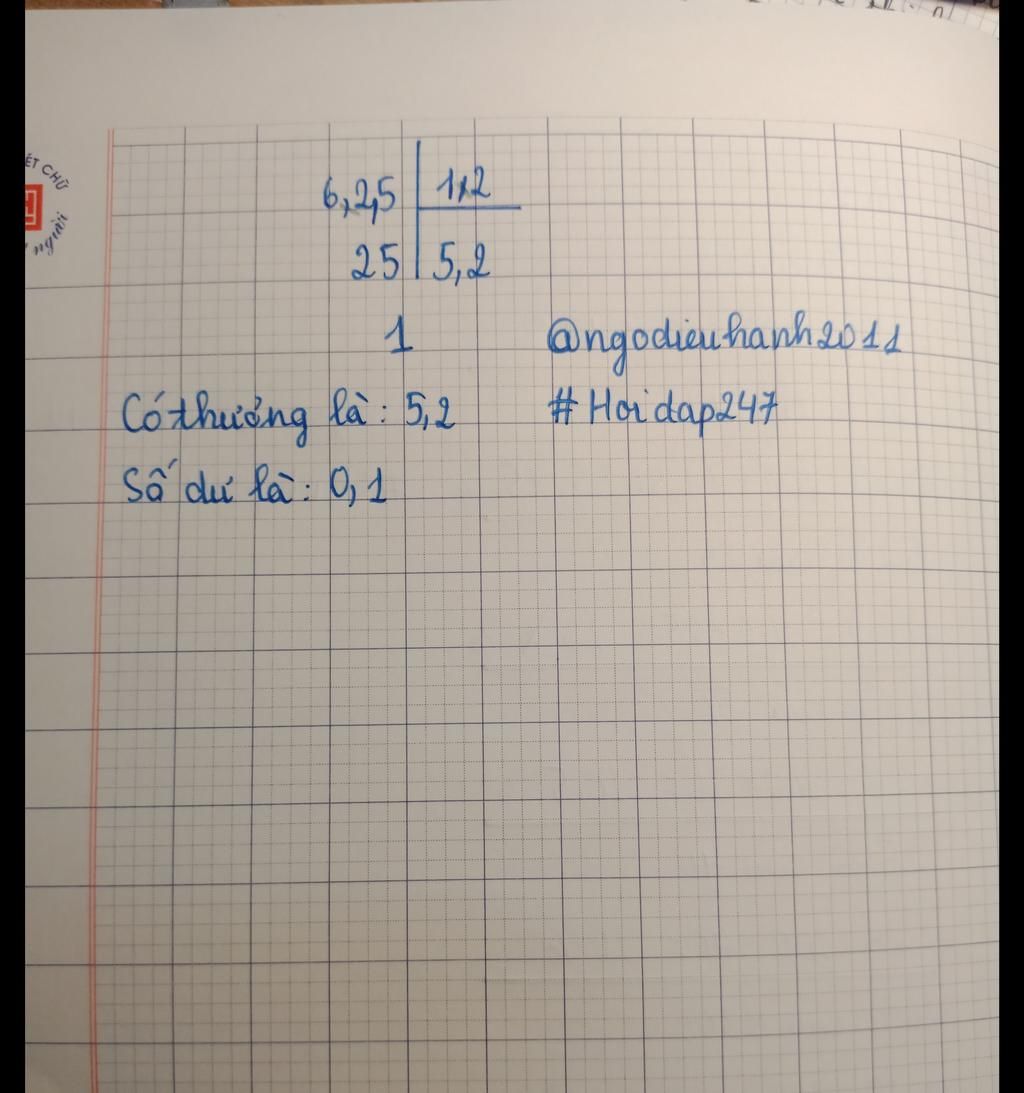 ẾT CHỮ
người
6,2,5 1,2
25 5,2
1 @ngodieuhanh2011
Có thương là: 5,2 #Hoidap247
Số dư là: 0,1